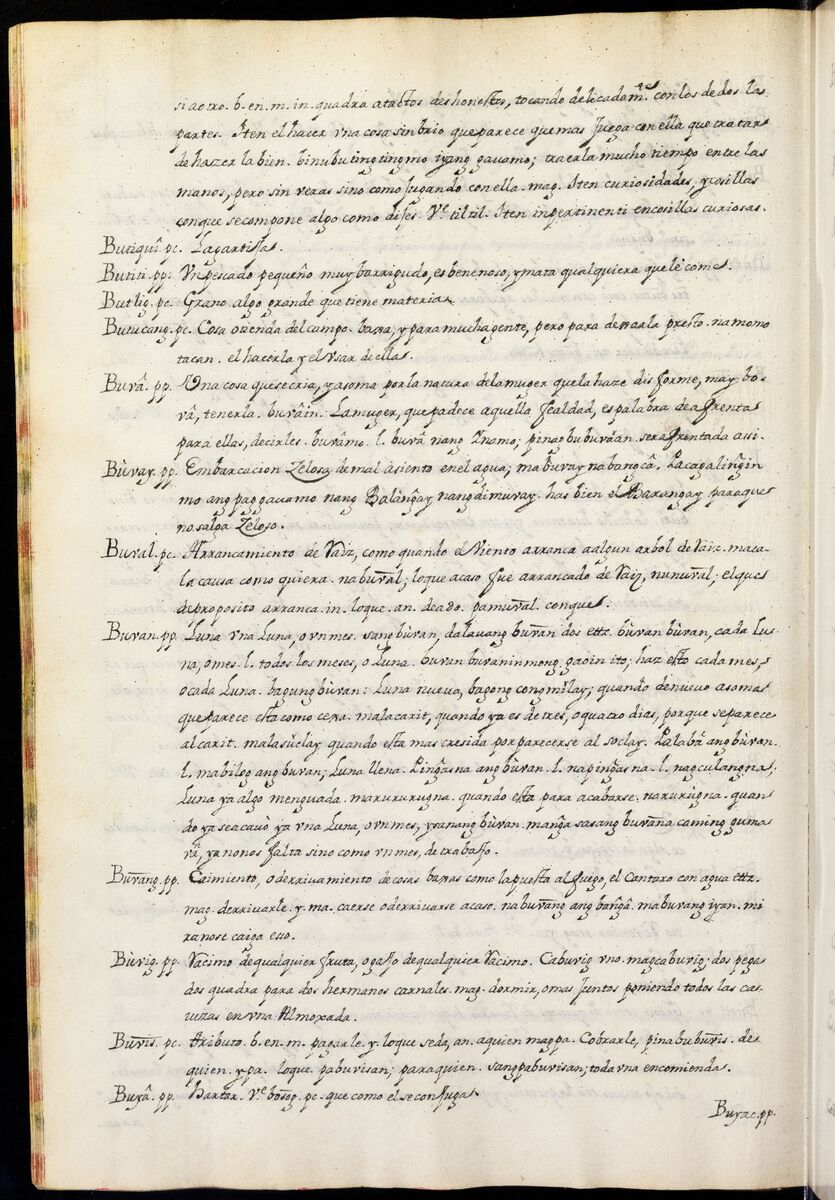 si aotro. b. en. m. in. quadra atactos deshonestos, tocando delicadam.te con los dedos las
partes. Iten el hacer vna cosa sin brio que parece que mas Juega con ella que tratar
de hazer la bien. binubutingtingmo iyang gavamo; traela mucho tiempo entre las
manos, pero sin veras sino como Jugando con ella. mag. Iten curiosidades, y cosillas
con que se compone algo como dijes. Ve. tiltil. Iten inpertinenti en cosillas curiosas.
Butiquî. pc. Lagartija.
Butiti. pp. Vn pescado pequeño muy barrigudo, es benenoso, y mata qualquiera que lê come.
Butlig. pc. Grano algo grande que tiene materia.
Butucang. pc. Cosa otienda del campo. baxa, y para mucha gente, pero para dexarla presto. namomo
tacan. el hacerla y el vsar de ella.
Buvâ. pp. Vna cosa que se cria, y asoma por la natura de la muger que la haze disforme, may bo-
vâ, tenerla. buvâin. La muger, que padece aquella fealdad, es palabra de afrenta
para ellas, decirles. buvâmo. l. buvâ nang Ynamo; pinagbubuvâan. ser afrentada asi.
Bùvay. pp. Embarcacion Zelosa de mal asiento en el agua; mabuvay na bangcâ. Pacagalinĝin
mo ang paggavamo nang Balanĝay nang dimuvay. has bien el Barangay para que
no salga Zeloso.
Buval. pc. Arrancamiento de Raiz, como quando el Viento arranca a algun arbol de Raiz. maca.
la causa como quiera. nabuval; loque acaso fue arrancado de Raiz, nunuval; el que
de proposito arranca. in. loque. an. deado. pamuval. conque.
Buvan. pp. Luna vna Luna, o vn mes. sangbùvan, dalavang buvan dos etcz. bùvan bùvan, cada Lu-
na, o mes. l. todos los meses, o Luna. buvan buvaninmong gaoin ito; haz esto cada mes,
o cada Luna. bagung bùvan: Luna nueva, bagong congmilay; quando de nuevo asoma
que parece esta como cexa. malacarit, quando ya es de tres, o quatro dias, porque se parece
al carit. malasùclay quando esta mas cresida por parecerse al soclay. Palabâ ang bùvan.
l. mabilog ang buvan; Luna llena. Pinĝas na ang bùvan. l. napinĝas na. l. nagculangna;
Luna ya algo menguada. marururugna. quando esta para acabarse. narurùgna. quan-
do ya se acavò ya vna Luna, o vn mes, ysanang bùvan. manĝa sasang buvanna caming guma
vâ, ya no nos falta sino como vn mes, de trabajo.
Buvang. pp. Caimiento, o derrivamiento de cosas baxas como la puesta al fuego, el Cantaro con agua etcz.
mag. derrivarle. y. ma. caerse o derrivarse acaso. nabuvang ang banĝâ. mabuvang iyan. mi
ra no se caiga eso.
Bùvig. pp. Racimo de qualquier fruta, o gajo de qualquier Racimo. Cabuvig vno. magcabuvig; dos pega
dos quadra para dos hermanos carnales. mag. dormir, o mas Juntos poniendo todos las ca-
vezas en vna Almoxada.
Buvis. pc. Atributo. b. en. m. pagarle. y. loque se da, an. a quien mappa. Cobrarle, pinabubuvis. de
quien. y pa. loque. pabuvisan; para quien. sangpabuvisan; toda vna encomienda.
Buyâ. pp. Hartar. Ve. bosog. pc. que como el se conjuga
Buyac. pp.